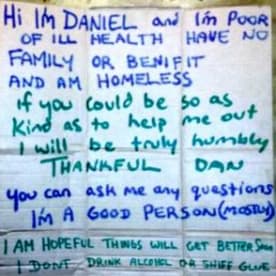 Hi IM DANIEL and I'm POOR
OF ILL HEALTH HAVE NO
FAMILY OR BENIFIT
AND AM HOMELESS
if you could be so as
Kind as to help me out
I will be truly humbly
THANKFUL DAN
you can ask me any questions
I'M A GOOD PERSON (MOSTLY)
I AM HOPEFUL THINGS WILL GET BETTER SOON
I DONT DRINK ALCOHOL OR SNIFF GLUE